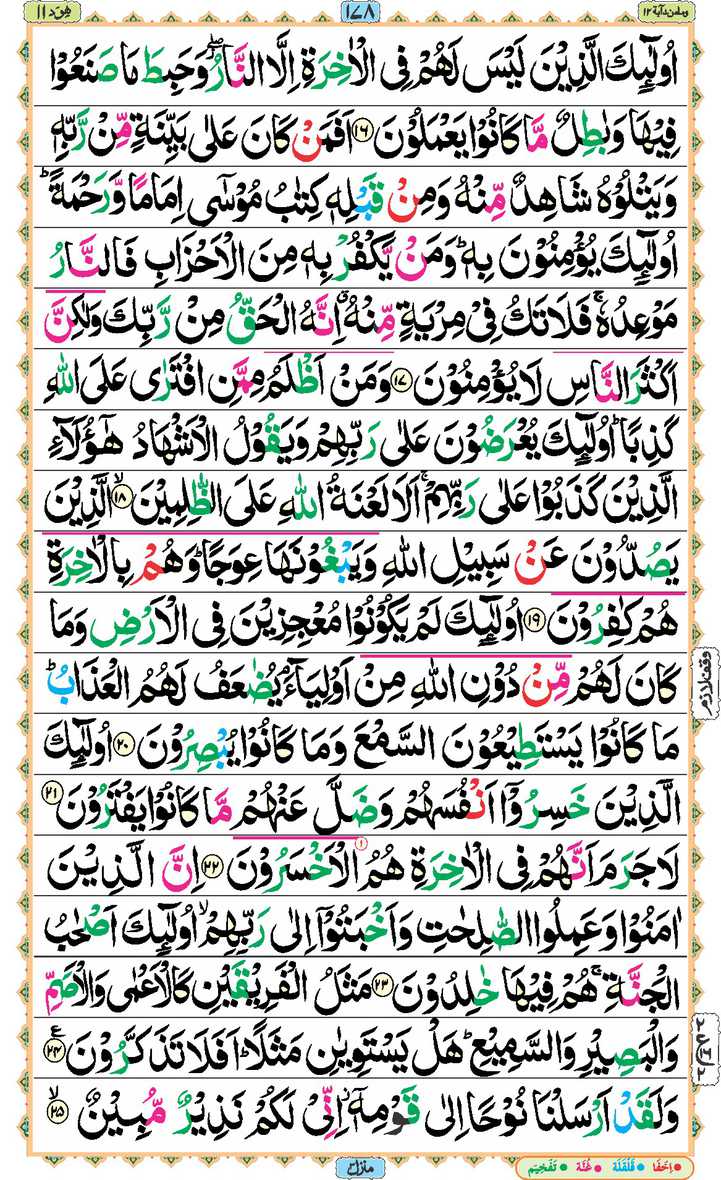 ومامن دآبة ١٢
١٧٨
هود ١١
اُولٰٓئِكَ الَّذِيْنَ لَيْسَ لَهُمْ فِى الْاٰخِرَةِ اِلَّا النَّارُ ۖ وَحَبِطَ مَا صَنَعُوْا
فِيْهَا وَبٰطِلٌ مَّا كَانُوْا يَعْمَلُوْنَ ۝١٦ اَفَمَنْ كَانَ عَلٰى بَيِّنَةٍ مِّنْ رَّبِّهٖ
وَيَتْلُوْهُ شَاهِدٌ مِّنْهُ وَمِنْ قَبْلِهٖ كِتٰبُ مُوْسٰٓى اِمَامًا وَّرَحْمَةً ؕ
اُولٰٓئِكَ يُؤْمِنُوْنَ بِهٖ ؕ وَمَنْ يَّكْفُرْ بِهٖ مِنَ الْاَحْزَابِ فَالنَّارُ
مَوْعِدُهٗ ۚ فَلَا تَكُ فِىْ مِرْيَةٍ مِّنْهُ ۗ اِنَّهُ الْحَقُّ مِنْ رَّبِّكَ وَلٰكِنَّ
اَكْثَرَ النَّاسِ لَا يُؤْمِنُوْنَ ۝١٧ وَمَنْ اَظْلَمُ مِمَّنِ افْتَرٰى عَلَى اللّٰهِ
كَذِبًا ؕ اُولٰٓئِكَ يُعْرَضُوْنَ عَلٰى رَبِّهِمْ وَيَقُوْلُ الْاَشْهَادُ هٰٓؤُلَآءِ
الَّذِيْنَ كَذَبُوْا عَلٰى رَبِّهِمْ ۚ اَلَا لَعْنَةُ اللّٰهِ عَلَى الظّٰلِمِيْنَ ۙ۝١٨ الَّذِيْنَ
يَصُدُّوْنَ عَنْ سَبِيْلِ اللّٰهِ وَيَبْغُوْنَهَا عِوَجًا ؕ وَهُمْ بِالْاٰخِرَةِ
هُمْ كٰفِرُوْنَ ۝١٩ اُولٰٓئِكَ لَمْ يَكُوْنُوْا مُعْجِزِيْنَ فِى الْاَرْضِ وَمَا
كَانَ لَهُمْ مِّنْ دُوْنِ اللّٰهِ مِنْ اَوْلِيَآءَ ۘ يُضٰعَفُ لَهُمُ الْعَذَابُ ؕ
وقف لازم
مَا كَانُوْا يَسْتَطِيْعُوْنَ السَّمْعَ وَمَا كَانُوْا يُبْصِرُوْنَ ۝٢٠ اُولٰٓئِكَ
الَّذِيْنَ خَسِرُوْٓا اَنْفُسَهُمْ وَضَلَّ عَنْهُمْ مَّا كَانُوْا يَفْتَرُوْنَ ۝٢١
لَا جَرَمَ اَنَّهُمْ فِى الْاٰخِرَةِ هُمُ الْاَخْسَرُوْنَ ۝٢٢ اِنَّ الَّذِيْنَ
اٰمَنُوْا وَعَمِلُوا الصّٰلِحٰتِ وَاَخْبَتُوْٓا اِلٰى رَبِّهِمْ ۙ اُولٰٓئِكَ اَصْحٰبُ
الْجَنَّةِ ۚ هُمْ فِيْهَا خٰلِدُوْنَ ۝٢٣ مَثَلُ الْفَرِيْقَيْنِ كَالْاَعْمٰى وَالْاَصَمِّ
وَالْبَصِيْرِ وَالسَّمِيْعِ ؕ هَلْ يَسْتَوِيٰنِ مَثَلًا ؕ اَفَلَا تَذَكَّرُوْنَ ۝٢٤ ع
وَلَقَدْ اَرْسَلْنَا نُوْحًا اِلٰى قَوْمِهٖٓ ۫ اِنِّىْ لَكُمْ نَذِيْرٌ مُّبِيْنٌ ۙ۝٢٥
منزل ٣
اِخْفَا • قَلْقَلَة • غُنَّة • تَفْخِيْم